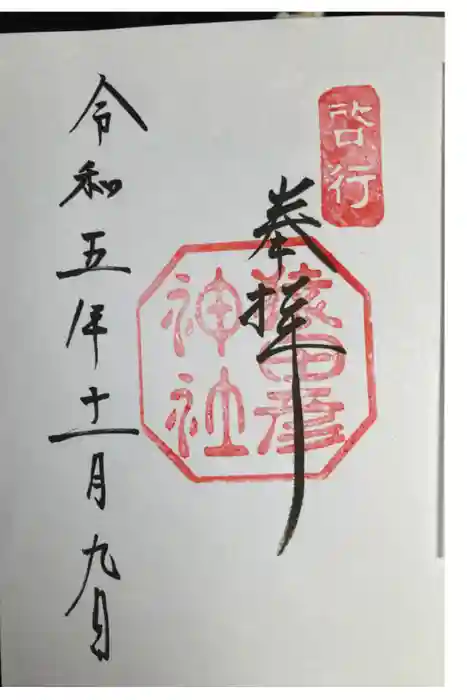 啓行
奉拝
猿田彦
神社
令和五年十一月九日